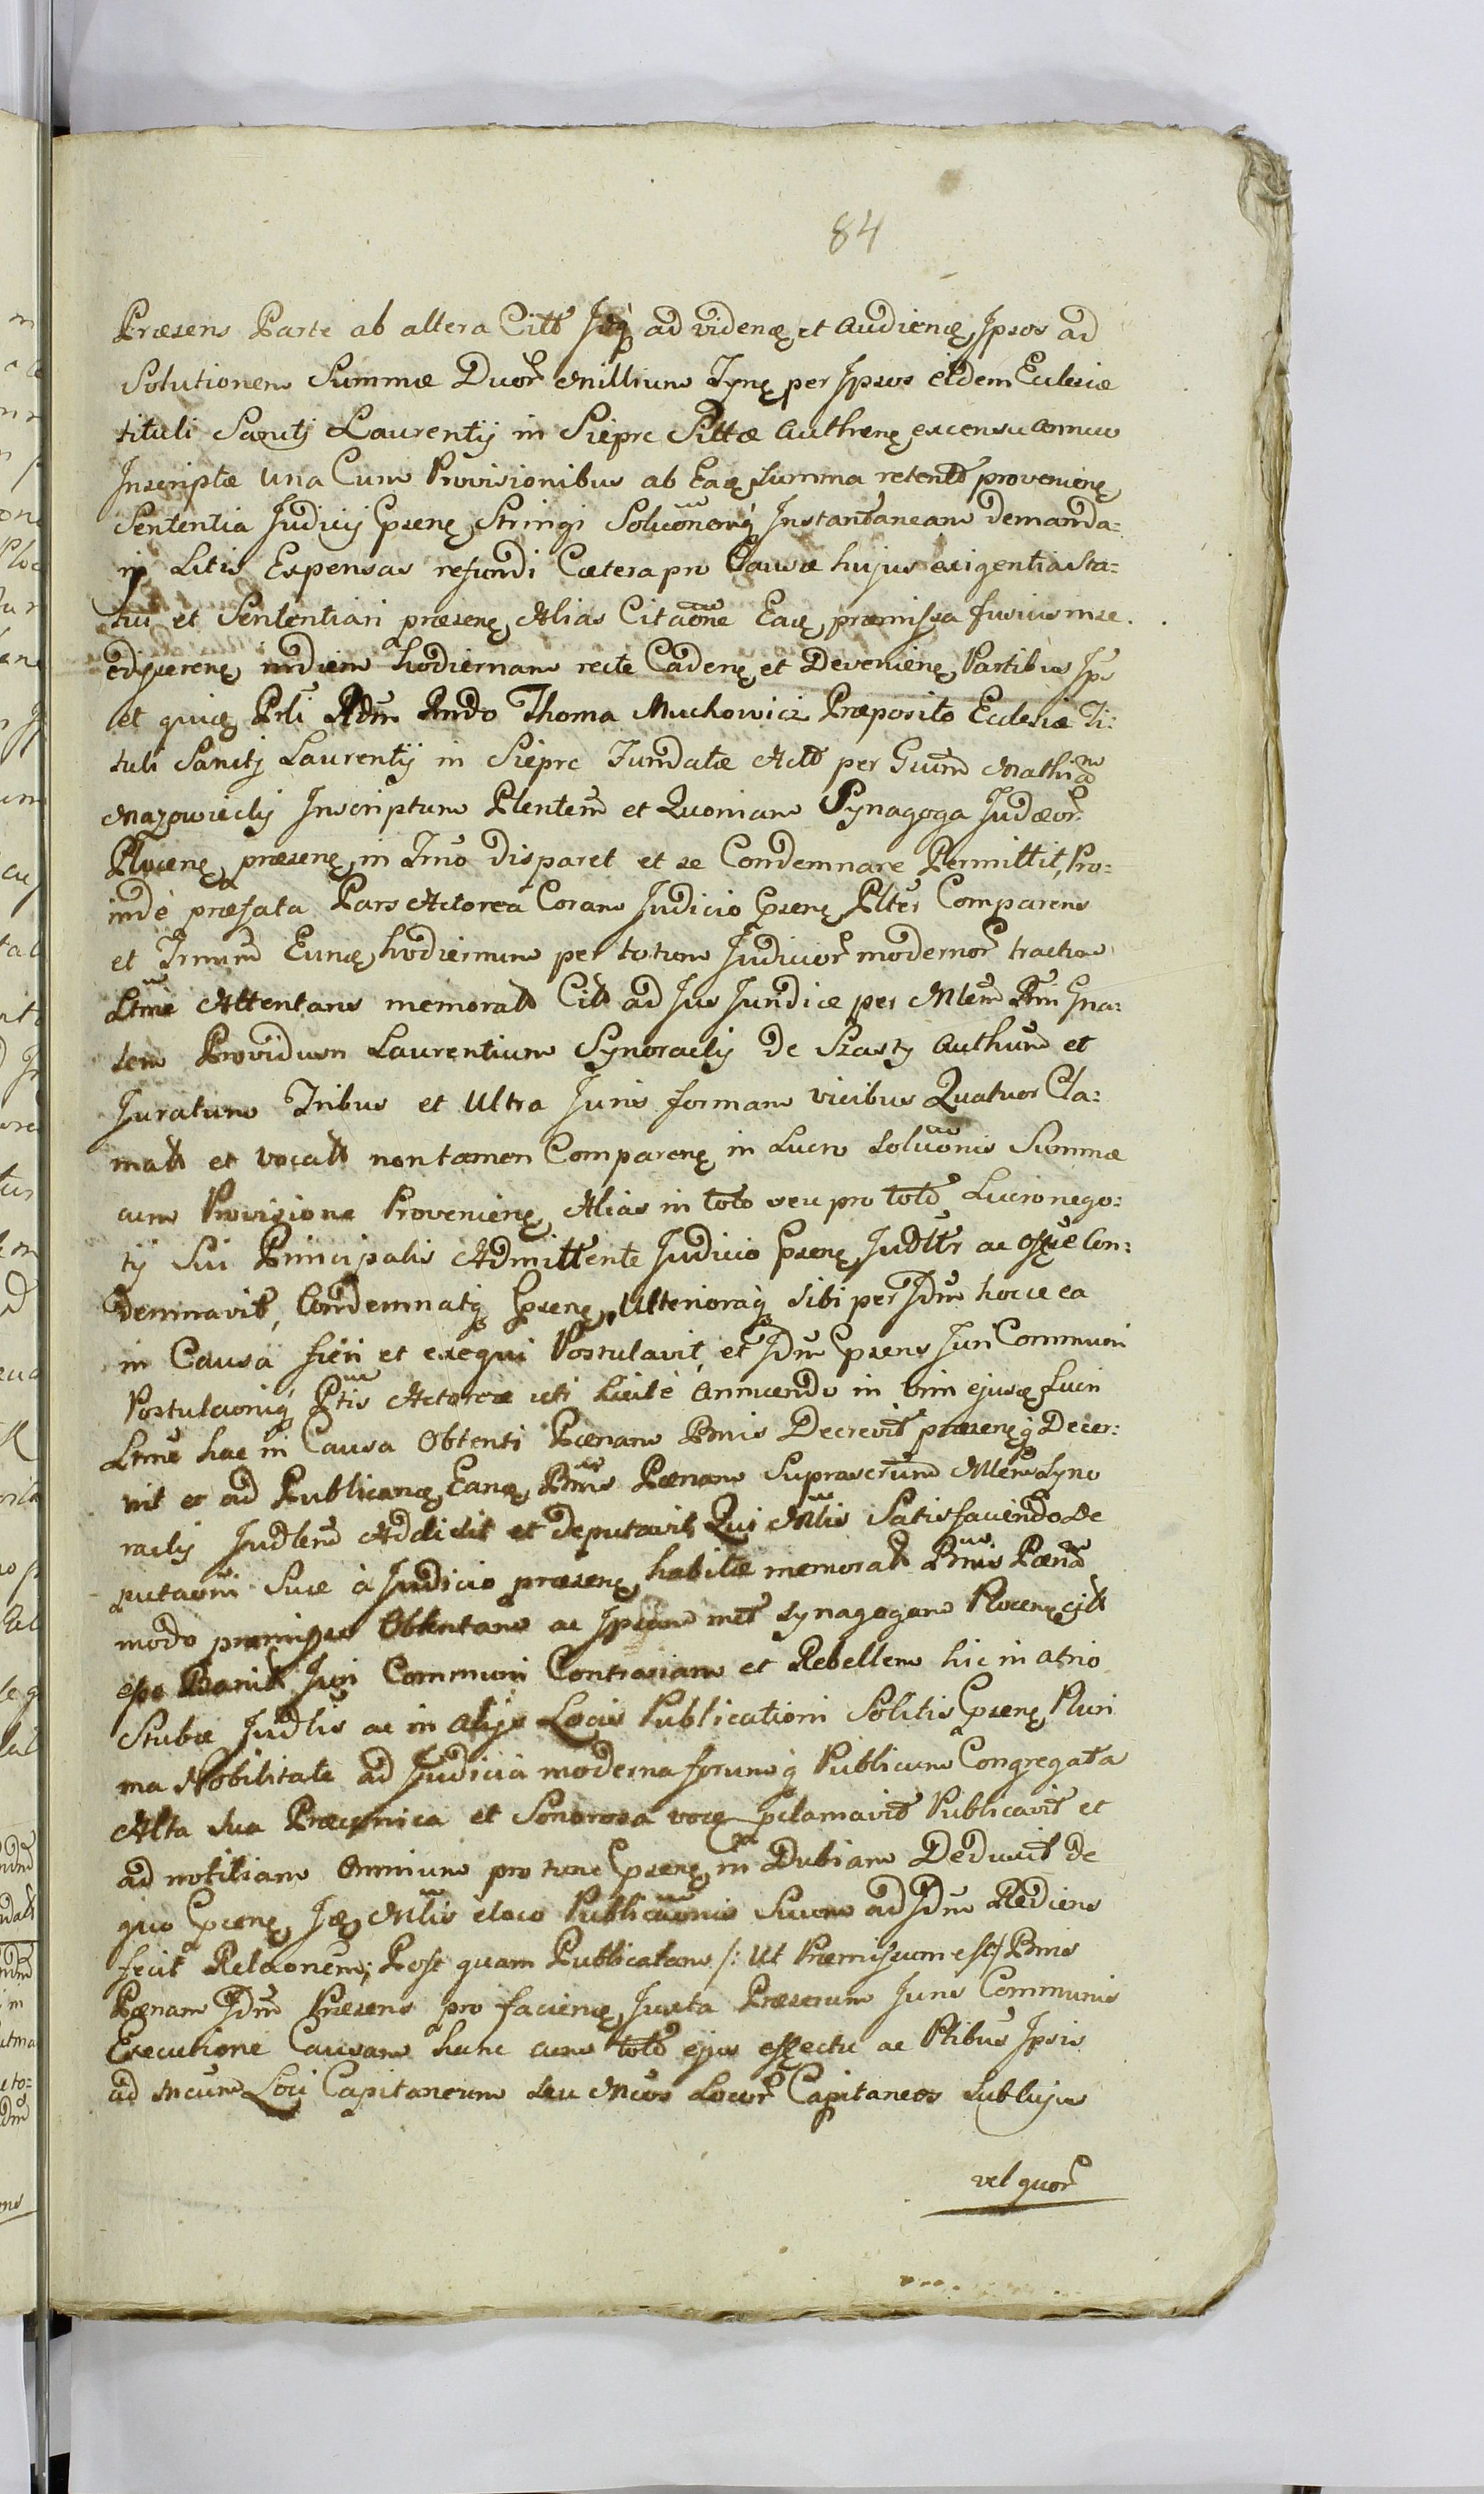 84
Præsens Parte ab altera Citt Itaq̀ ad videnᶒ et audienᶒ Ipsos ad
Solutionem Summæ Duor Millium Tynᶒ per Ipsos eidem Ecclesiæ
tituli Sancti Laurentij in Sieprc Sittæ authrenᶒ ex censu annuo
Inscriptæ una Cum Provisionibus ab Eaᶒ Summa retentt provenienᶒ
Sententia Judicij Ipsenᶒ Stringi Soluõnemq̀ Instantaneam demanda=
ri Litis Expensas refundi Cætera pro Causæ hujus exigentia Sta=
tui et Sententiari præsenᶒ Alias Citaõne Eaᶒ præmissa fusius in se
edisserenᶒ in diem hodiernam recte Cadenᶒ et Devenienᶒ Partibus Ips
et quiᶒ Prli Adm Rndo Thoma Muchowicz Præposito Ecclesiæ Ti:
tuli Sancti Laurentij in Sieprc Fundatæ Actt per Gnum Mathiam
Mazowiecky Inscriptum Plentem et Quoniam Synagoga Judæor
Plocenᶒ præsenᶒ in Trno disparet et se Condemnare Permittit, Pro=
indè præfata Pars Actorea Coram Judicio Ipsenᶒ Plter Comparens
et Trnum Eunᶒ hodiernum per totum Judicior modernor tractum
Ltme Attentans memoratt Citt ad Jus Juridice per Mlem Rni Gna=
lem Providum Laurentium Synoracky de Szasty Authum et
Juratum Tribus et Ultra Juris formam vicibus Quatuor Cla=
matt et vocatt non tamen Comparenᶒ in Lucro Soluõnis Summæ
cum Provisione Provenienᶒ Alias in toto seu pro toto Lucro nego=
tij Sui Principalis Admittente Judicio Ipsenᶒ Judltr ac Offse Con=
demnavit, Condemnatq̀ Ipsenᶒ, Ulterioraq̀ Sibi per Jdm hocce ea
in Causa fieri et exequi Postulavit, et Jdm Ipsens Juri Communi
Postulaõniq̀ Ptis Actoreæ uti Licitè Annuendo in vim ejusᶒ Lucri
Ltme hac in Causa Obtenti Pœnam Bnnis Decrevit præsenᶒq̀ Decer=
nit et ad Publicanᶒ Eanᶒ Bnnis Pœnam Suprascrtum Mlem Syno
racky Judlem Addidit et deputavit, Qui Mlis Satisfaciendo De
putaõni Suæ à Judicio præsenᶒ habitæ memoratt Bnnis Pœnam
modo præmisso Obtentam ac Ipsam mett Synagogam Plocenᶒ Citt
esse Banitt Juri Communi Contrariam et Rebellem hic in atrio
Stubæ Judlis ac in alijs Locis Publicationi Solitis Ipsenᶒ Pluri
ma Nobilitate ad Judicia moderna forumq̀ Publicum Congregata
Alta Sua Præconica et Sonorosa voce pclamavit Publicavit et
ad notitiam Omnium pro tunc Ipsenᶒ in Dubiam Deduxit de
quo Ipsenᶒ Jᶒ Mlis eloco Publicaõnis Suum ad Jdm Rediens
fecit Relaonem; Post quam Publicatam /: Ut Præmissum est :/ Bnnis
Pœnam Jdm Præsens pro facienᶒ Juxta Præscrum Juris Communis
Executione Causam hanc cum toto ejus effectu ac Ptibus Ipsis
ad Mcum Loci Capitaneum seu Mcos Locor Capitaneos Sub cujus
vel quor